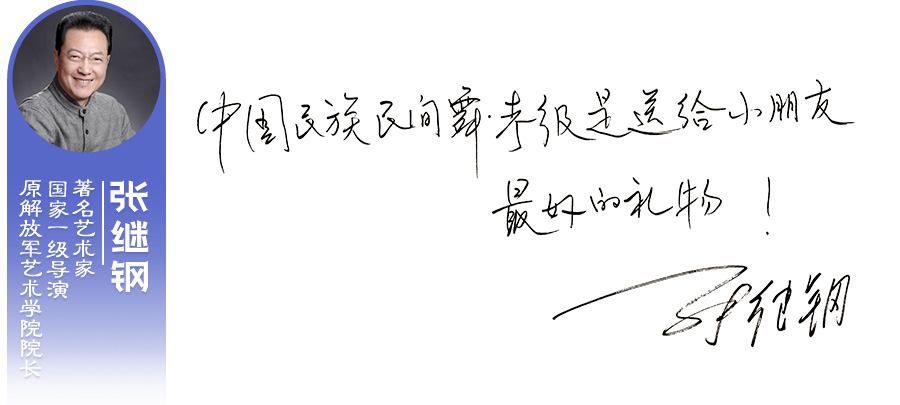 张继钢
著名艺术家
国家一级导演
原解放军艺术学院院长
中国民族民间舞·考级是送给小朋友
最好的礼物！
张继钢